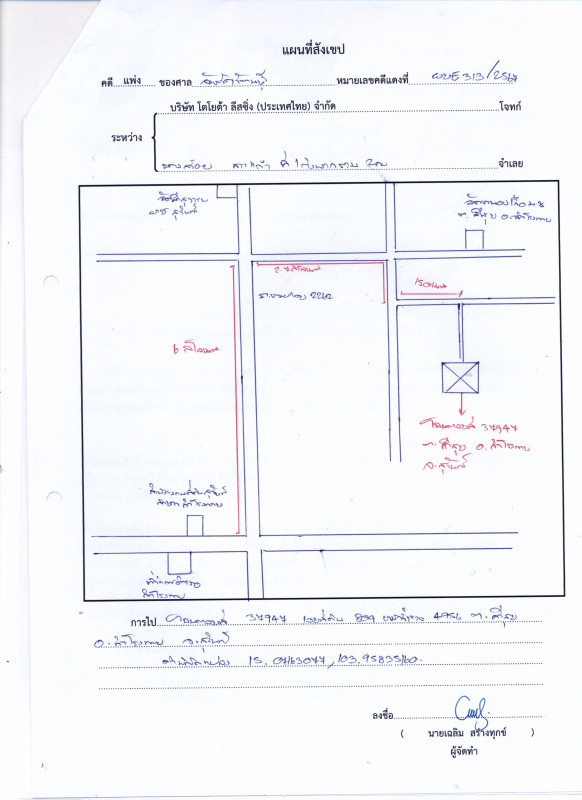 แผนที่สังเขป
คดี แพ่ง ของศาล จังหวัดรัตนบุรี หมายเลขคดีแดงที่ ผบE 313/2567
บริษัท โตโยต้า ลีสซิ่ง (ประเทศไทย) จำกัด โจทก์
ระหว่าง
ที่ 1 กับพวกรวม 2คน จำเลย
ต.สีสุข อ.สำโรงทาบ
2262
6 กิโลเมตร
150เมตร
โฉนดเลขที่ 37947
ต.สีสุข อ.สำโรงทาบ
จ.สุรินทร์
สำนักงานที่ดินสุรินทร์
สาขา สำโรงทาบ
ที่ว่าการอำเภอ
สำโรงทาบ
การไป โฉนดเลขที่ 37947 เลขที่ดิน 809 หน้าสำรวจ 4956 ต.สีสุข
อ.สำโรงทาบ จ.สุรินทร์
15.0763077,103.95835160.
ลงชื่อ
( นายเฉลิม สร้างทุกข์ )
ผู้จัดทำ